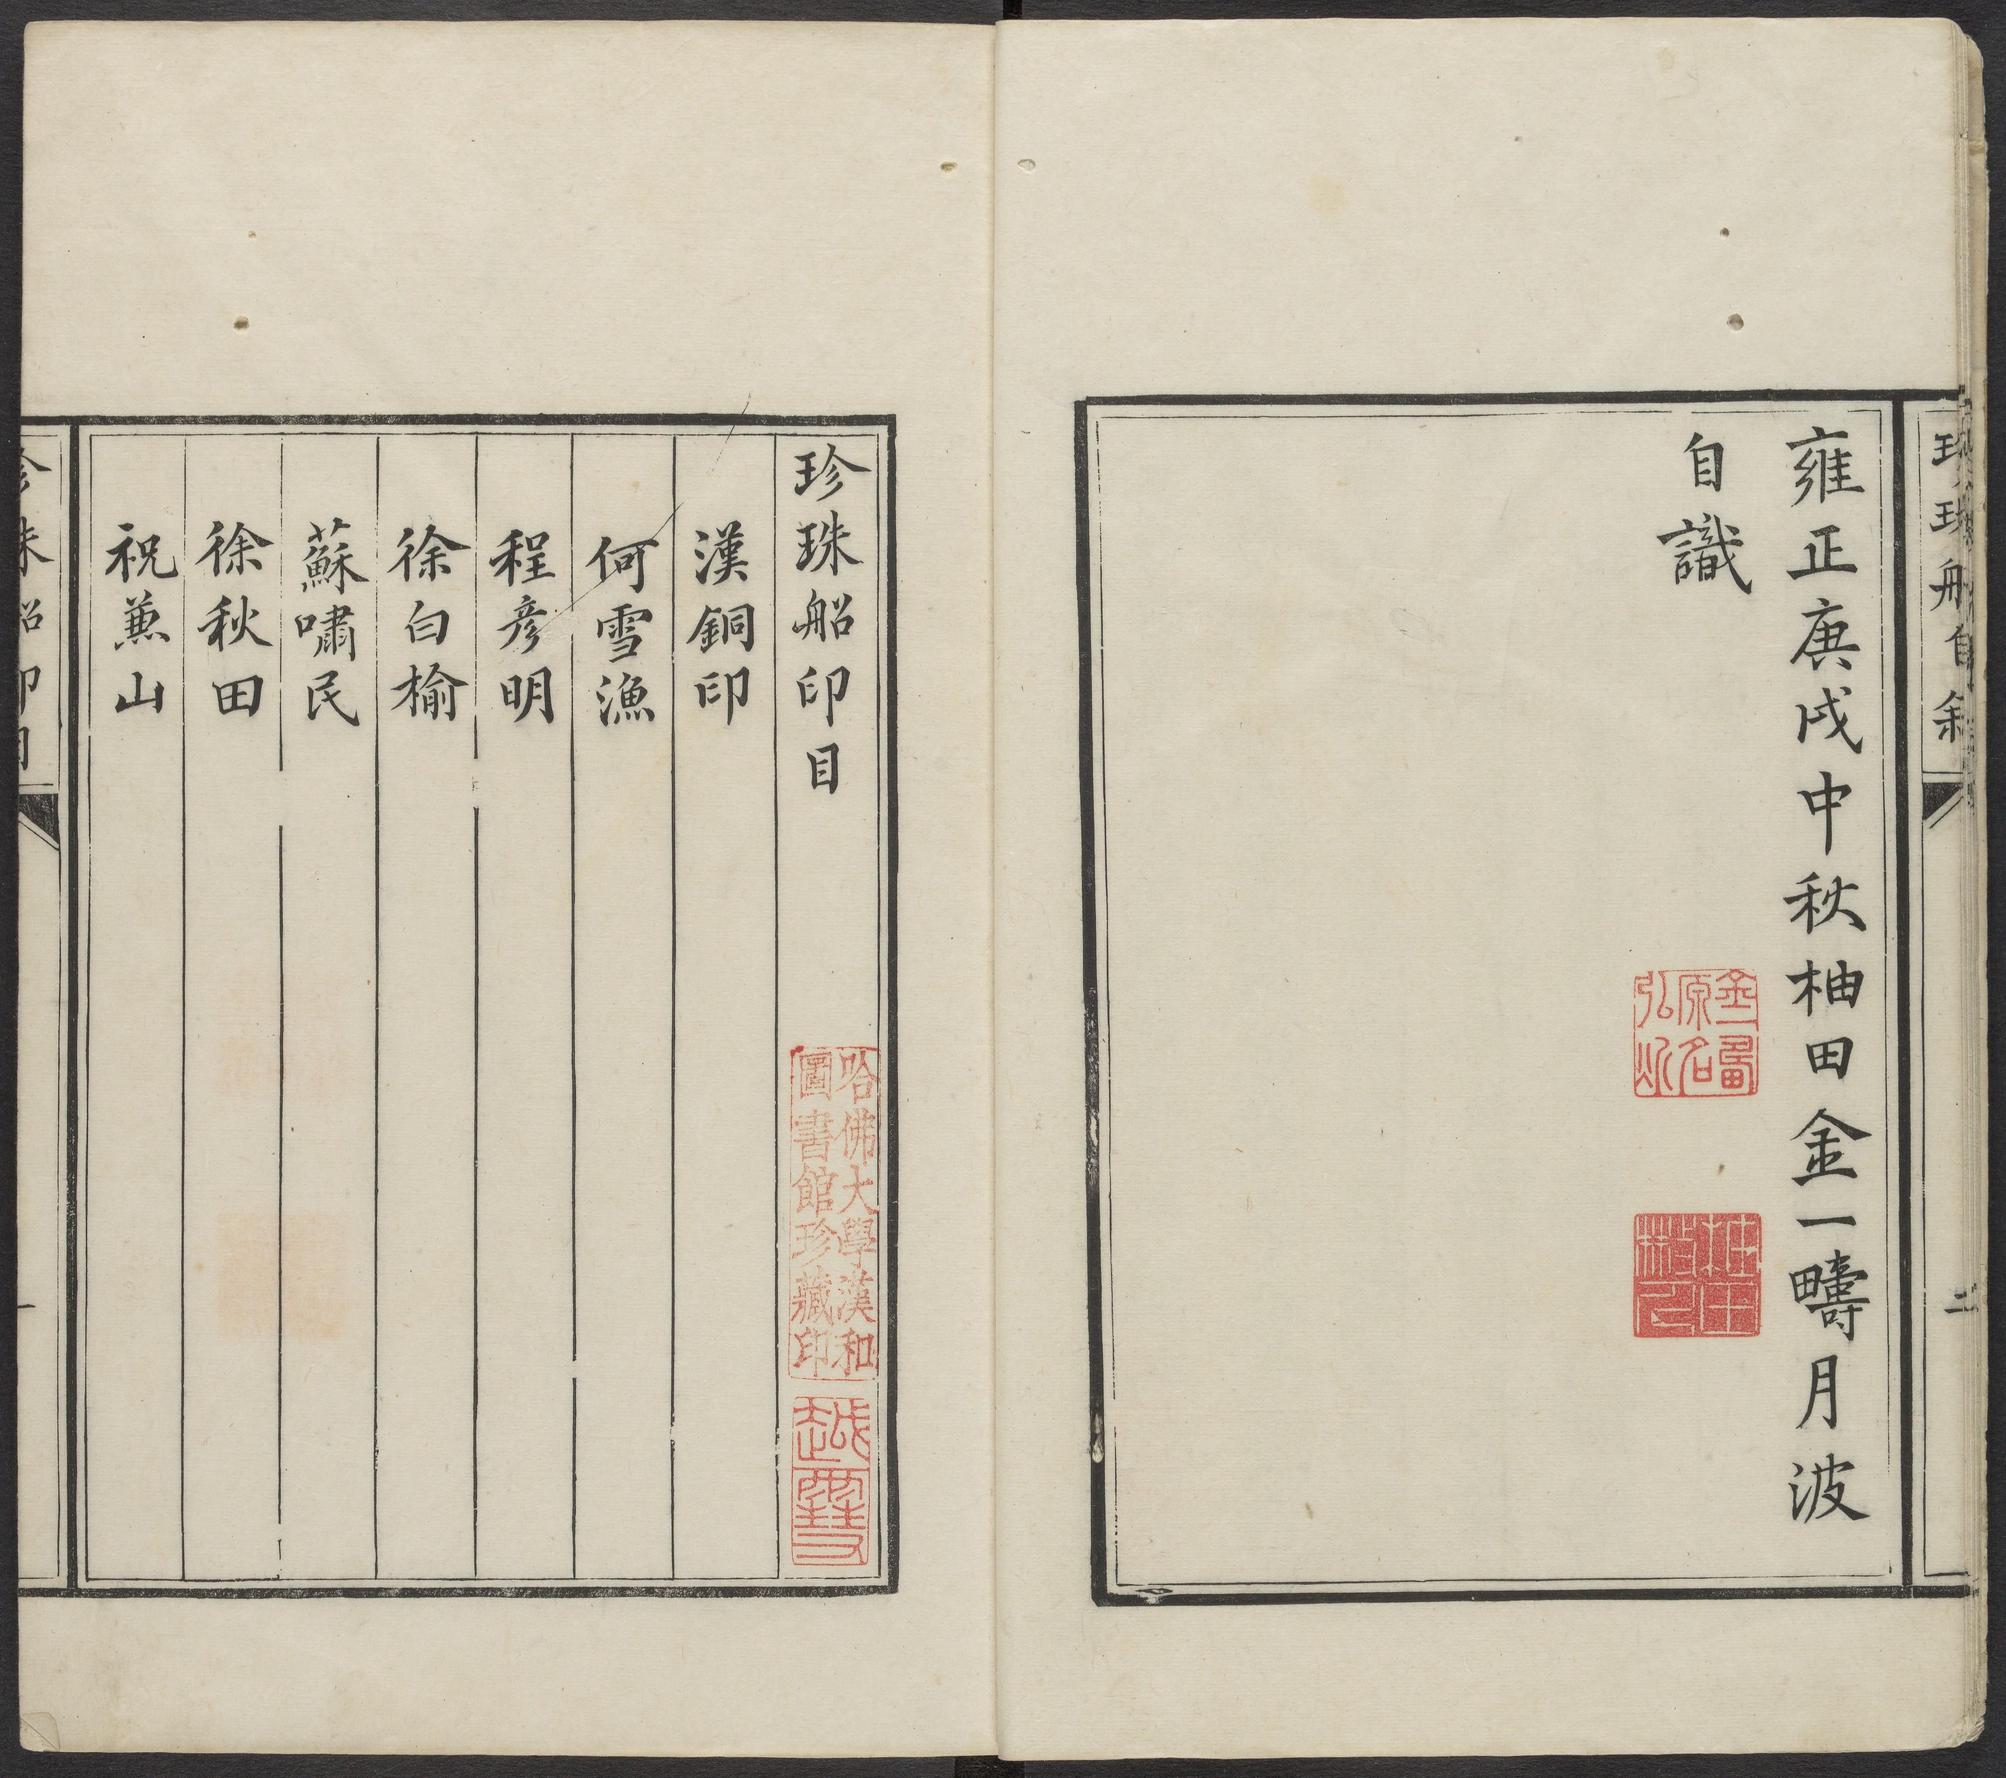 珍珠船自敘
二
雍正庚戌中秋柚田金一疇月波
自識
金圖
原名
弘勳
珍珠船印目
哈佛大學漢和
圖書館珍藏印
漢銅印
何雪漁
程彥明
徐白榆
蘇嘯民
徐秋田
祝蒹山
珍珠船印目
一